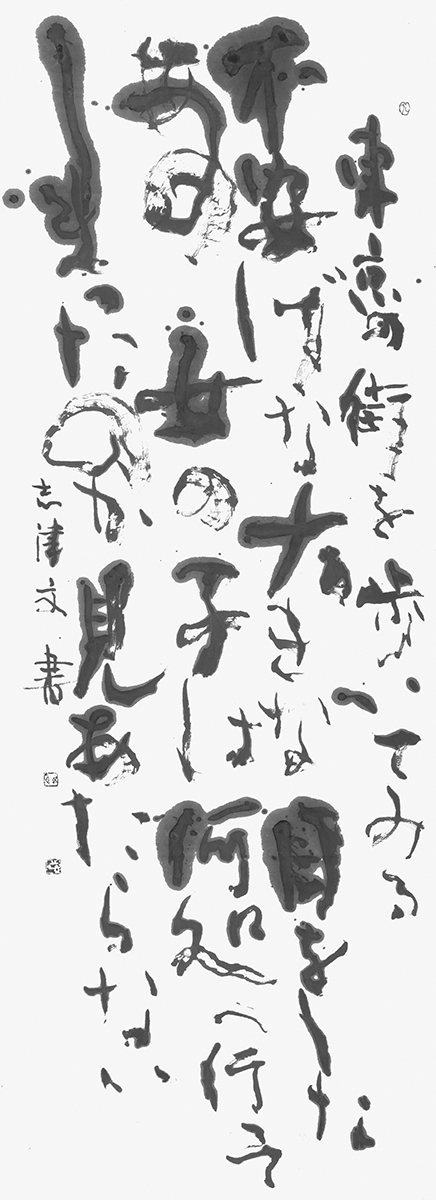 東京の街を歩いてみる
不安げな大きな目をした
若い女の子は何処へ行って
しまったのか見あたらない
志津文書